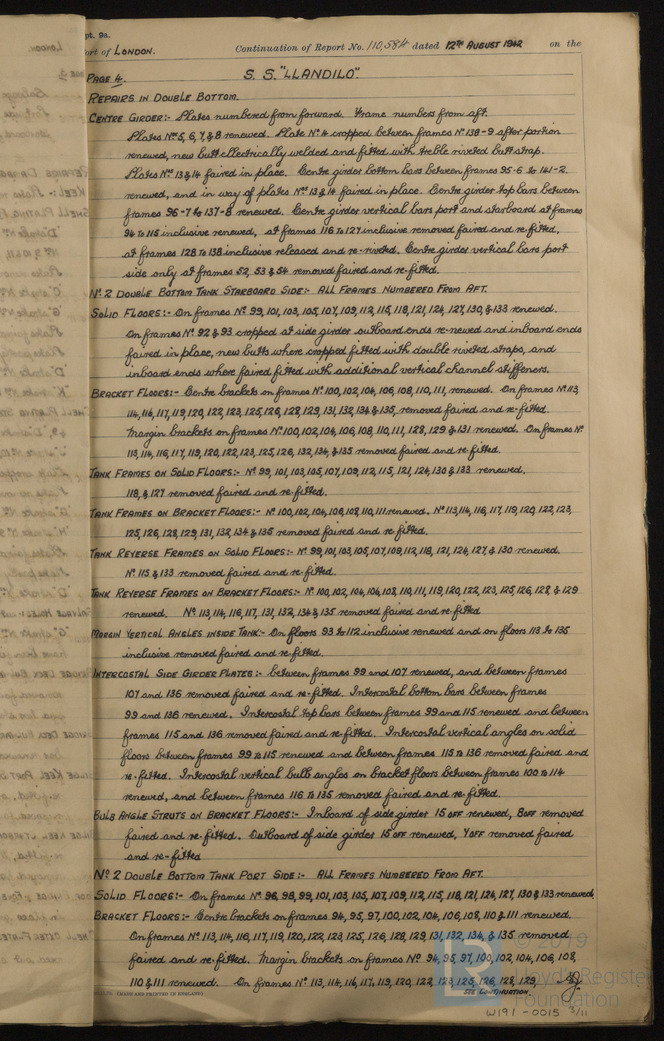 pt. 9a.
ort of LONDON. Continuation of Report No. 110,584 dated 12TH AUGUST 1942 on the
PAGE 4. S. S. "LLANDILO".
REPAIRS IN DOUBLE BOTTOM.
CENTRE GIRDER:- Plates numbered from forward. Frame numbers from aft.
Plates Nos 5, 6, 7, & 8 renewed. Plate No 4 cropped between frames No 138-9 after portion
renewed, new butt electrically welded and fitted with treble riveted butt strap.
Plates Nos 13 & 14 faired in place. Centre girder bottom bars between frames 95-6 to 141-2.
renewed, and in way of plates Nos 13 & 14 faired in place. Centre girder top bars between
frames 96-7 to 137-8 renewed. Centre girder vertical bars port and starboard at frames
94 to 115 inclusive renewed, at frames 116 to 127 inclusive removed faired and re-fitted,
at frames 128 to 138 inclusive released and re-riveted. Centre girder vertical bars port
side only at frames 52, 53 & 54 removed faired and re-fitted.
No 2 DOUBLE BOTTOM TANK STARBOARD SIDE:- ALL FRAMES NUMBERED FROM AFT.
SOLID FLOORS:- On frames No 99, 101, 103, 105, 107, 109, 112, 115, 118, 121, 124, 127, 130, & 133 renewed.
On frames No 92 & 93 cropped at side girder outboard ends re-newed and inboard ends
faired in place, new butts where cropped fitted with double riveted straps, and
inboard ends where faired fitted with additional vertical channel stiffeners.
BRACKET FLOORS:- Centre brackets on frames No 100, 102, 104, 106, 108, 110, 111, renewed. On frames No 113,
114, 116, 117, 119, 120, 122, 123, 125, 126, 128, 129, 131, 132, 134 & 135, removed faired and re-fitted.
Margin brackets on frames No 100, 102, 104, 106, 108, 110, 111, 128, 129 & 131 renewed. On frames No
113, 114, 116, 117, 119, 120, 122, 123, 125, 126, 132, 134, & 135 removed faired and re-fitted.
TANK FRAMES ON SOLID FLOORS:- No 99, 101, 103, 105, 107, 109, 112, 115, 121, 124, 130 & 133 renewed.
118, & 127 removed faired and re-fitted.
TANK FRAMES ON BRACKET FLOORS:- No 100, 102, 104, 106, 108, 110, 111 renewed. No 113, 114, 116, 117, 119, 120, 122, 123,
125, 126, 128, 129, 131, 132, 134 & 135 removed faired and re fitted.
TANK REVERSE FRAMES ON SOLID FLOORS:- No 99, 101, 103, 105, 107, 109, 112, 118, 121, 124, 127, & 130 renewed.
No 115 & 133 removed faired and re-fitted.
TANK REVERSE FRAMES ON BRACKET FLOORS: No 100, 102, 104, 106, 108, 110, 111, 119, 120, 122, 123, 125, 126, 128, & 129
renewed. No 113, 114, 116, 117, 131, 132, 134 & 135 removed faired and re-fitted
MARGIN VERTICAL ANGLES INSIDE TANK:- On floors 93 to 112 inclusive renewed and on floors 113 to 135
inclusive removed faired and re-fitted.
INTERCOSTAL SIDE GIRDER PLATES:- between frames 99 and 107 renewed, and between frames
107 and 136 removed faired and re-fitted. Intercostal bottom bars between frames
99 and 136 renewed. Intercostal top bars between frames 99 and 115 renewed and between
frames 115 and 136 removed faired and re-fitted. Intercostal vertical angles on solid
floors between frames 99 to 115 renewed and between frames 115 to 136 removed faired and
re-fitted. Intercostal vertical bulb angles on bracket floors between frames 100 to 114
renewed, and between frames 116 to 135 removed faired and re-fitted.
BULB ANGLE STRUTS ON BRACKET FLOORS:- Inboard of side girder 15 OFF renewed, 8 OFF removed
faired and re-fitted. Outboard of side girder 15 OFF renewed, 7 OFF removed faired
and re-fitted
No 2 DOUBLE BOTTOM TANK PORT SIDE:- ALL FRAMES NUMBERED FROM AFT.
SOLID FLOORS:- On frames No 96, 98, 99, 101, 103, 105, 107, 109, 112, 115, 118, 121, 124, 127, 130 & 133 renewed.
BRACKET FLOORS:- Centre brackets on frames 94, 95, 97, 100, 102, 104, 106, 108, 110 & 111 renewed.
On frames No 113, 114, 116, 117, 119, 120, 122, 123, 125, 126, 128, 129, 131, 132, 134, & 135 removed
faired and re-fitted. Margin brackets on frames No 94, 95, 97, 100, 102, 104, 106, 108,
110 & 111 renewed. On frames No 113, 114, 116, 117, 119, 120, 122, 123, 125, 126, 128, 129,
SEE CONTINUATION
© 2019
Lloyd's Register
Foundation
W191-0015 3/11